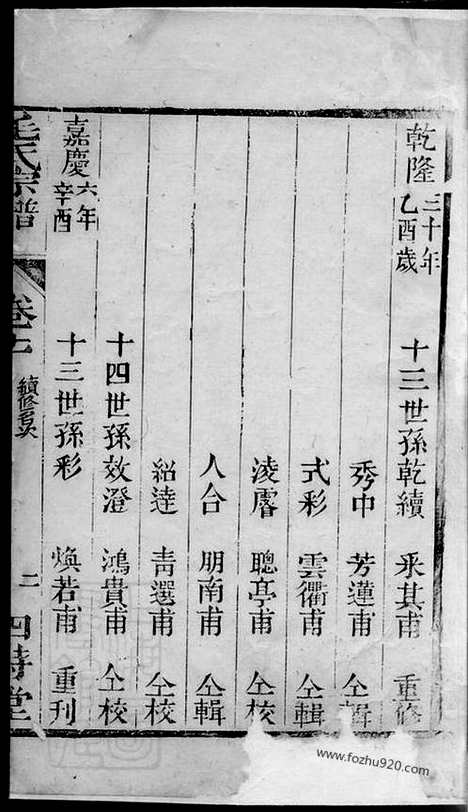 乾隆三十年乙酉歲 十三世孫乾續 采其甫 重修
秀中 芳蓮甫 仝輯
式彩 雲衢甫 仝輯
淩霨 聰亭甫 仝校
人合 朋南甫 仝輯
紹逹 靑選甫 仝校
十四世孫效澄 鴻貴甫 仝校
嘉慶六年辛酉 十三世孫彩 煥若甫 重刊
氏宗譜 卷 續修名次 二 四時堂
www.fozhu920.com